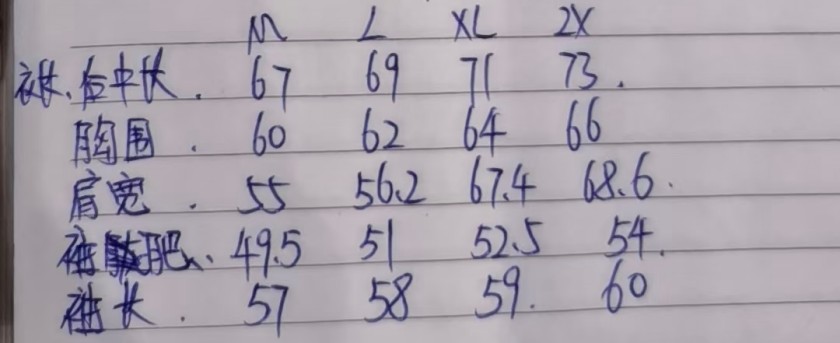 M L XL 2X
衣长、后中长. 67 69 71 73.
胸围. 60 62 64 66
肩宽. 55 56.2 67.4 68.6.
袖肥、49.5 51 52.5 54.
袖长. 57 58 59. 60